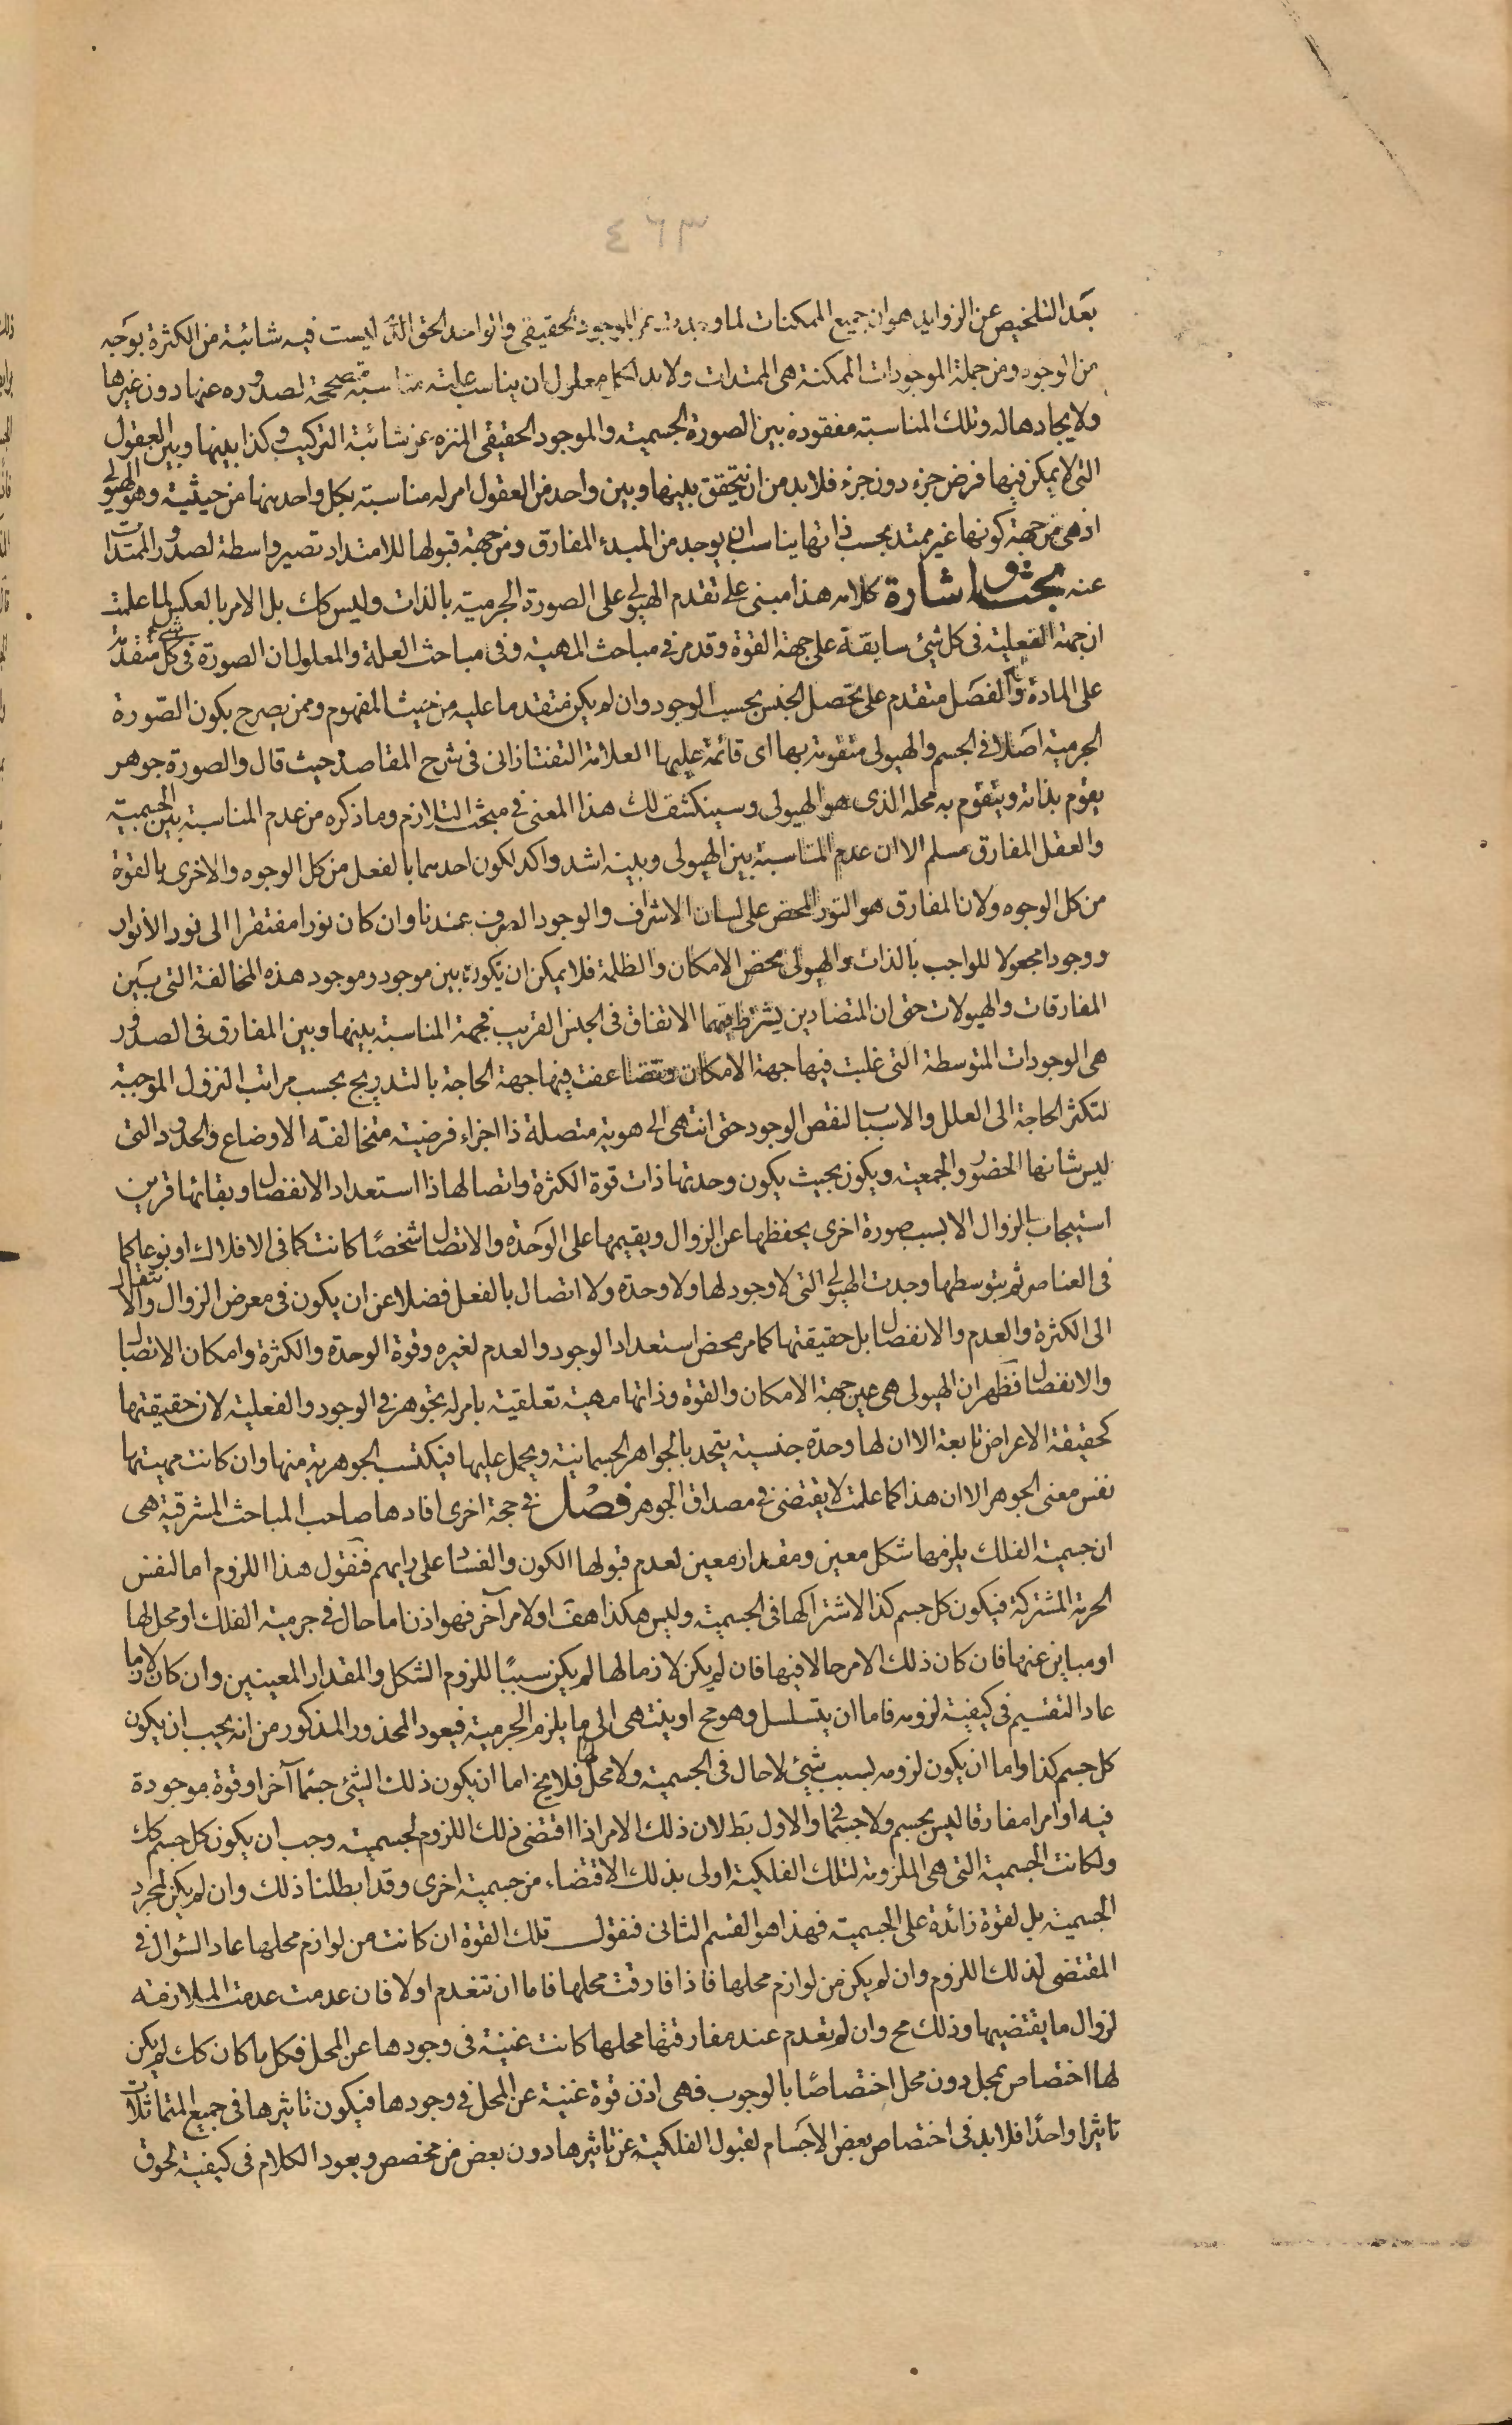 ٤٦٣
بعد التلخيص عن الزوايد هو ان جميع الممكنات لما وجدت عن الموجود الحقيقى والواحد الحق الذى ليست فيه شائبة من الكثرة بوجه
من الوجود ومن جملة الموجودات الممكنة هى الممتدات ولا بد لكل معلول ان يناسب علته مناسبة مصححة لصدوره عنها دون غيرها
ولايجادها له وتلك المناسبة مفقودة بين الصورة الجسمية والموجود الحقيقى المنزه عن شائبة التركيب وكذا بينها وبين العقول
التى لا يمكن فيها فرض جزء دون جزء فلا بد من ان يتحقق بينها وبين واحد من العقول امر له مناسبة بكل واحد منها من حيثية وهو الهيولى
اذ هى من جهة كونها غير ممتد بحسب ذاتها يناسب ان يوجد من المبدء المفارق ومن جهة قبولها للامتداد تصير واسطة لصدور الممتدات
عنه بحث واشارة كلامه هذا مبنى على تقدم الهيولى على الصورة الجرمية بالذات وليس كك بل الامر بالعكس لما علمت
ان جهة الفعلية فى كل شىء سابقة على جهة القوة وقد مر فى مباحث المهية وفى مباحث العلة والمعلول ان الصورة فى كل شىء متقدمة
على المادة وان الفصل متقدم على تحصل الجنس بحسب الوجود وان لم يكن متقدما عليه من حيث المفهوم وممن يصرح بكون الصورة
الجرمية اصلا فى الجسم والهيولى متقومة بها اى قائمة عليها العلامة التفتازانى فى شرح المقاصد حيث قال والصورة جوهر
يقوم بذاته ويتقوم به محله الذى هو الهيولى وسينكشف لك هذا المعنى فى مبحث التلازم وما ذكره من عدم المناسبة بين الجسمية
والعقل المفارق مسلم الا ان عدم المناسبة بين الهيولى وبينه اشد واكد لكون احدهما بالفعل من كل الوجوه والاخرى بالقوة
من كل الوجوه ولان المفارق هو النور المحض على لسان الاشراف والوجود الصرف عندنا وان كان نورا مفتقرا الى نور الأنوار
ووجودا مجعولا للواجب بالذات والهيولى محض الامكان والظلمة فلا يمكن ان يكون بين موجود وموجود هذه المخالفة التى بين
المفارقات والهيولات حتى ان المتضادين يشترط فيهما الاتفاق فى الجنس القريب فجهة المناسبة بينها وبين المفارق فى الصدور
هى الوجودات المتوسطة التى غلبت فيها جهة الامكان وتضاعفت فيها جهة الحاجة بالتدريج بحسب مراتب النزول الموجبة
لتكثر الحاجة الى العلل والاسباب لنقص الوجود حتى انتهى الى هوية متصلة ذا اجزاء فرضية متخالفة الاوضاع والحدود التى
ليس شانها الحضور والجمعية ويكون بحيث يكون وحدتها ذات قوة الكثرة واتصالها ذا استعداد الانفصال وبقائها قرين
استيجاب الزوال الا بسبب صورة اخرى يحفظها عن الزوال ويقيمها على الوحدة والاتصال شخصًا كانت كما فى الافلاك او نوعا كما
فى العناصر ثم بتوسطها وجدت الهيولى التى لا وجود لها ولا وحدة ولا اتصال بالفعل فضلا عن ان يكون فى معرض الزوال والانتقال
الى الكثرة والعدم والانفصال بل حقيقتها كما مر محض استعداد الوجود والعدم لغيره وقوة الوحدة والكثرة وامكان الاتصال
والانفصال فظهر ان الهيولى هى عين جهة الامكان والقوة وذاتها مهية تعلقية بامر له تجوهر فى الوجود والفعلية لان حقيقتها
كحقيقة الاعراض تابعة الا ان لها وحدة جنسية يتحد بالجواهر الجسمانية ويحمل عليها فيكتسب الجوهرية منها وان كانت مهيتها
نفس معنى الجوهر الا ان هذا كما علمت لا يقتضى فى مصداق الجوهر فصل فى حجة اخرى افادها صاحب المباحث المشرقية هى
ان جسمية الفلك يلزمها شكل معين ومقدار معين لعدم قبولها الكون والفساد على رايهم فنقول هذا اللزوم اما لنفس
الجرمية المشتركة فيكون كل جسم كذا لاشتراكها فى الجسمية وليس هكذا هف اولا مر آخر فهو اذن اما حال فى جرمية الفلك او محل لها
او مباين عنها فان كان ذلك الامر حالا فيها فان لم يكن لازما لها لم يكن سببًا للزوم الشكل والمقدار المعينين وان كان لازما
عاد التقسيم فى كيفية لزومه فاما ان يتسلسل وهو مح او ينتهى الى ما يلزم الجرمية فيعود المحذور المذكور من انه يجب ان يكون
كل جسم كذا واما ان يكون لزومه بسبب شىء لا حال فى الجسمية ولا محل لها فلا يخ اما ان يكون ذلك الشىء جسما آخر او قوة موجودة
فيه او امرا مفارقا ليس بجسم ولا جسمانى والاول بط لان ذلك الامر اذا اقتضى ذلك اللزوم لجسميته وجب ان يكون كل جسم كك
ولكانت الجسمية التى هى الملزومة لتلك الفلكية اولى بذلك الاقتضاء من جسمية اخرى وقد ابطلنا ذلك وان لم يكن لمجرد
الجسمية بل لقوة زائدة على الجسمية فهذا هو القسم الثانى فنقول تلك القوة ان كانت من لوازم محلها عاد السؤال فى
المقتضى لذلك اللزوم وان لم يكن من لوازم محلها فاذا فارقت محلها فاما ان تنعدم اولا فان عدمت عدمت الملازمة
لزوال ما يقتضيها وذلك مح وان لم تعدم عند مفارقتها محلها كانت غنية فى وجودها عن المحل فكل ما كان كك لم يكن
لها اختصاص بمحل دون محل اختصاصًا بالوجوب فهى اذن قوة غنية عن المحل فى وجودها فيكون تاثيرها فى جميع المتماثلات
تاثيرا واحدًا فلا بد فى اختصاص بعض الاجسام لقبول الفلكية عن تاثيرها دون بعض من مخصص ويعود الكلام فى كيفية لحوق